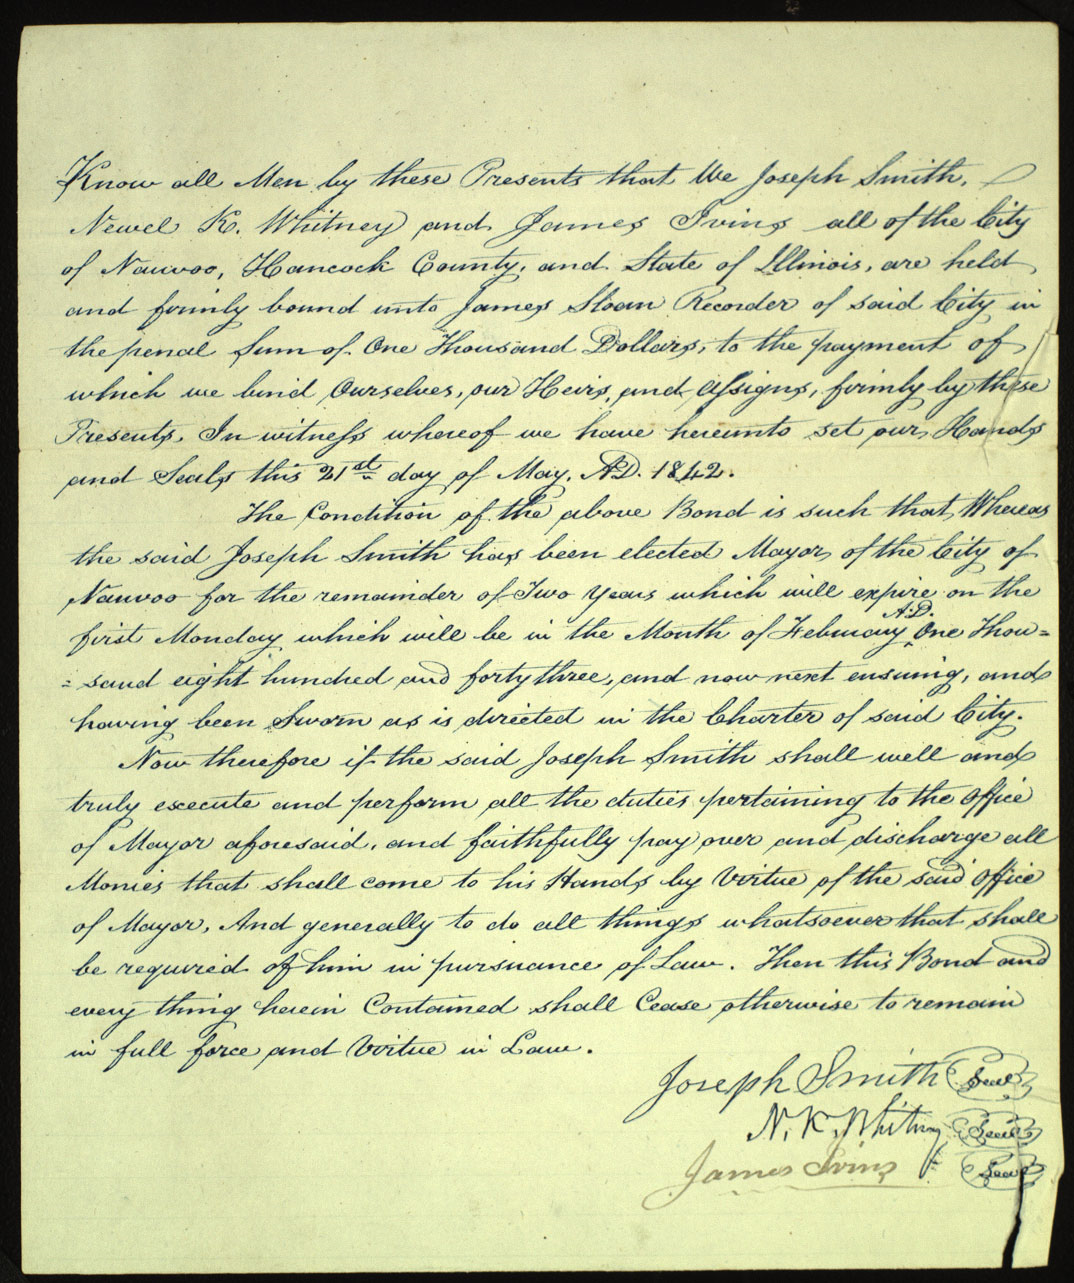 Know all Men by these Presents that We Joseph Smith,
Newel K. Whitney and James Ivins all of the City
of Nauvoo, Hancock County, and State of Illinois, are held
and firmly bound unto James Sloan Recorder of said City in
the penal Sum of One Thousand Dollars, to the payment of
which we bind Ourselves, our Heirs, and Assigns, firmly by these
Presents. In witness whereof we have hereunto set our Hands
and Seals this 21st day of May, A.D. 1842.
The Condition of the above Bond is such that, Whereas
the said Joseph Smith has been elected Mayor, of the City of
Nauvoo for the remainder of Two Years which will expire on the
first Monday which will be in the Month of February ^A.D. One Thou=
=sand eight hundred and forty three, and now next ensuing, and
having been Sworn as is directed in the Charter of said City.
Now therefore if the said Joseph Smith shall well and
truly execute and perform all the duties pertaining to the Office
of Mayor aforesaid, and faithfully pay over and discharge all
Monies that shall come to his Hands by Virtue of the said Office
of Mayor, And generally to do all things whatsoever that shall
be required of him in pursuance of Law. Then this Bond and
every thing herein Contained shall Cease otherwise to remain
in full force and Virtue in Law.
Joseph Smith Seal
N. K. Whitney Seal
James Ivins Seal